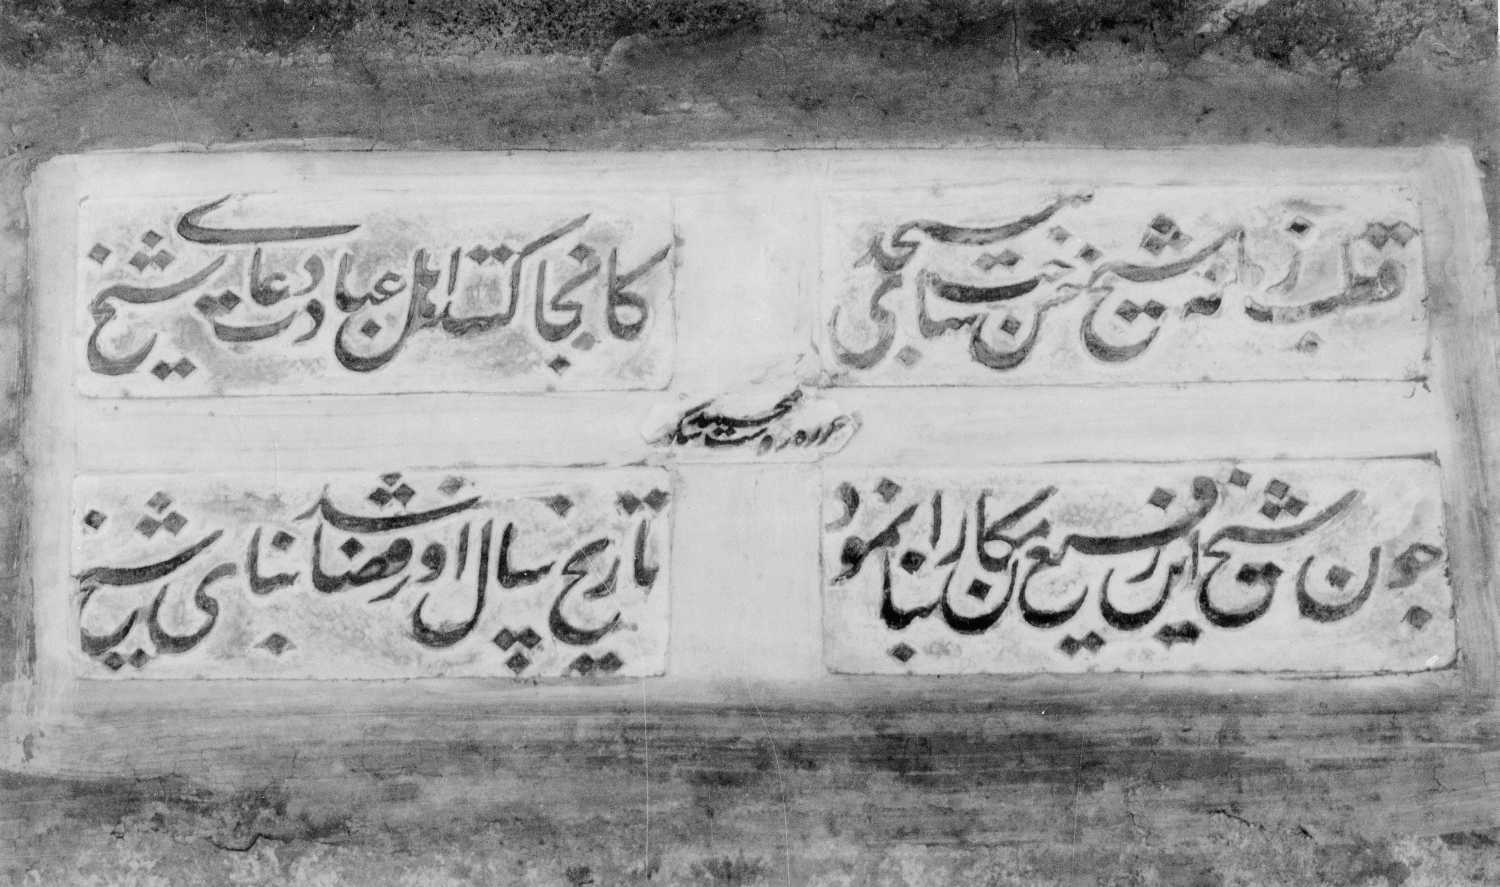 قطب زمانه شیخ حسن ساخت مسجدی
کانجا کنند اهل عبادت دعای شیخ
حرره دوست محمد
چون شیخ این رفیع مکان را بنا نمود
تاریخ سال او ز قضا شد بنای شیخ